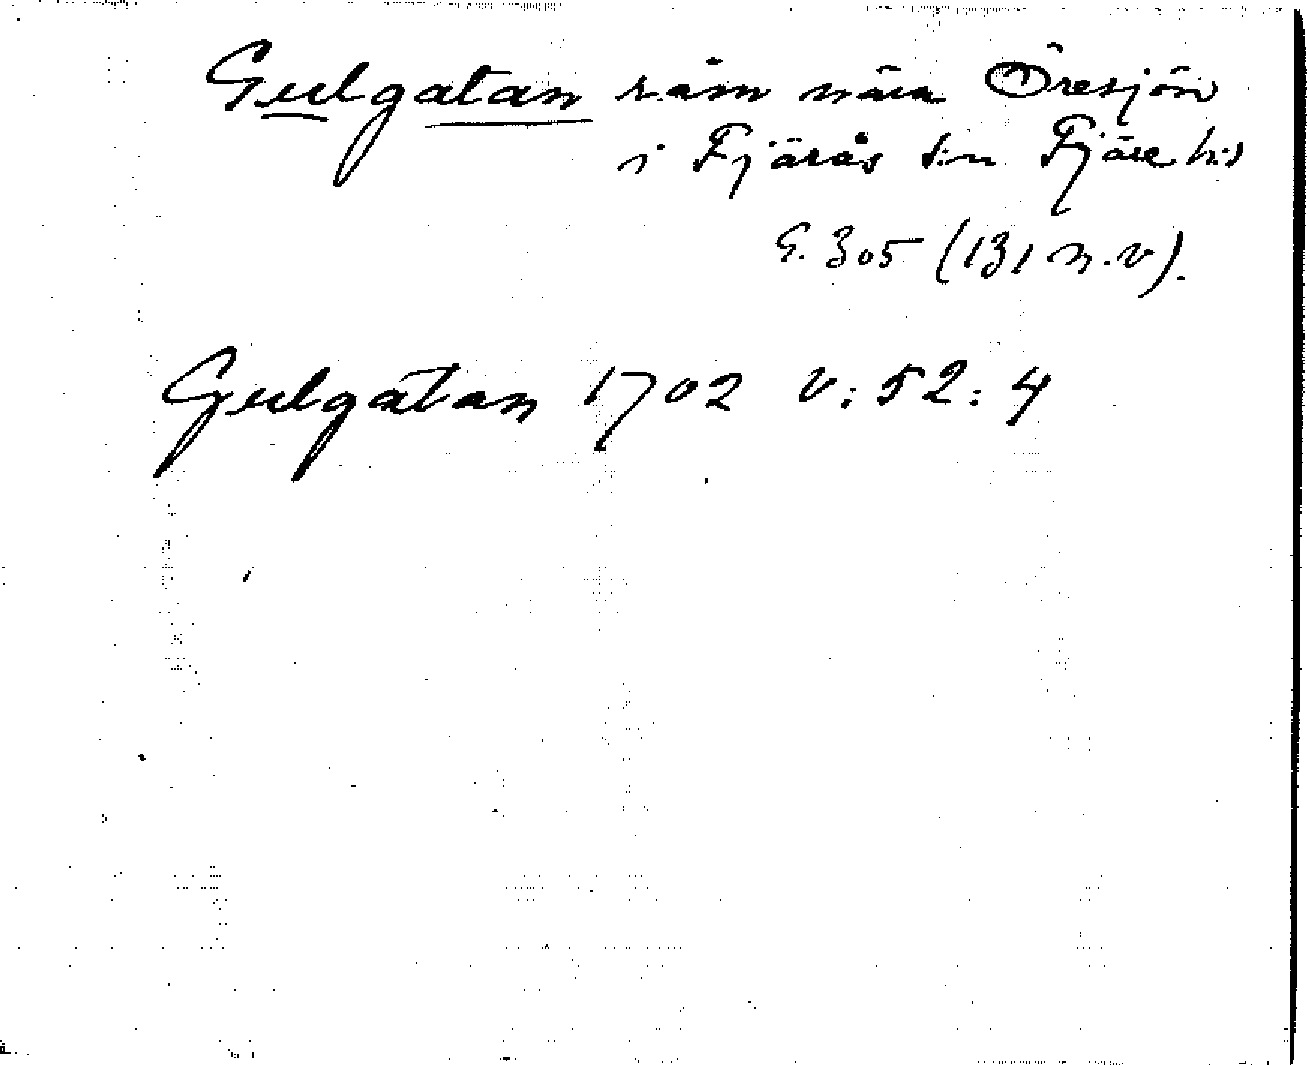 Gulgatan råm nära Öresjön
i Fjärås sn Fjäre hd
G. 305 (131 n.v).
Gulgatan 1702 v: 52: 4